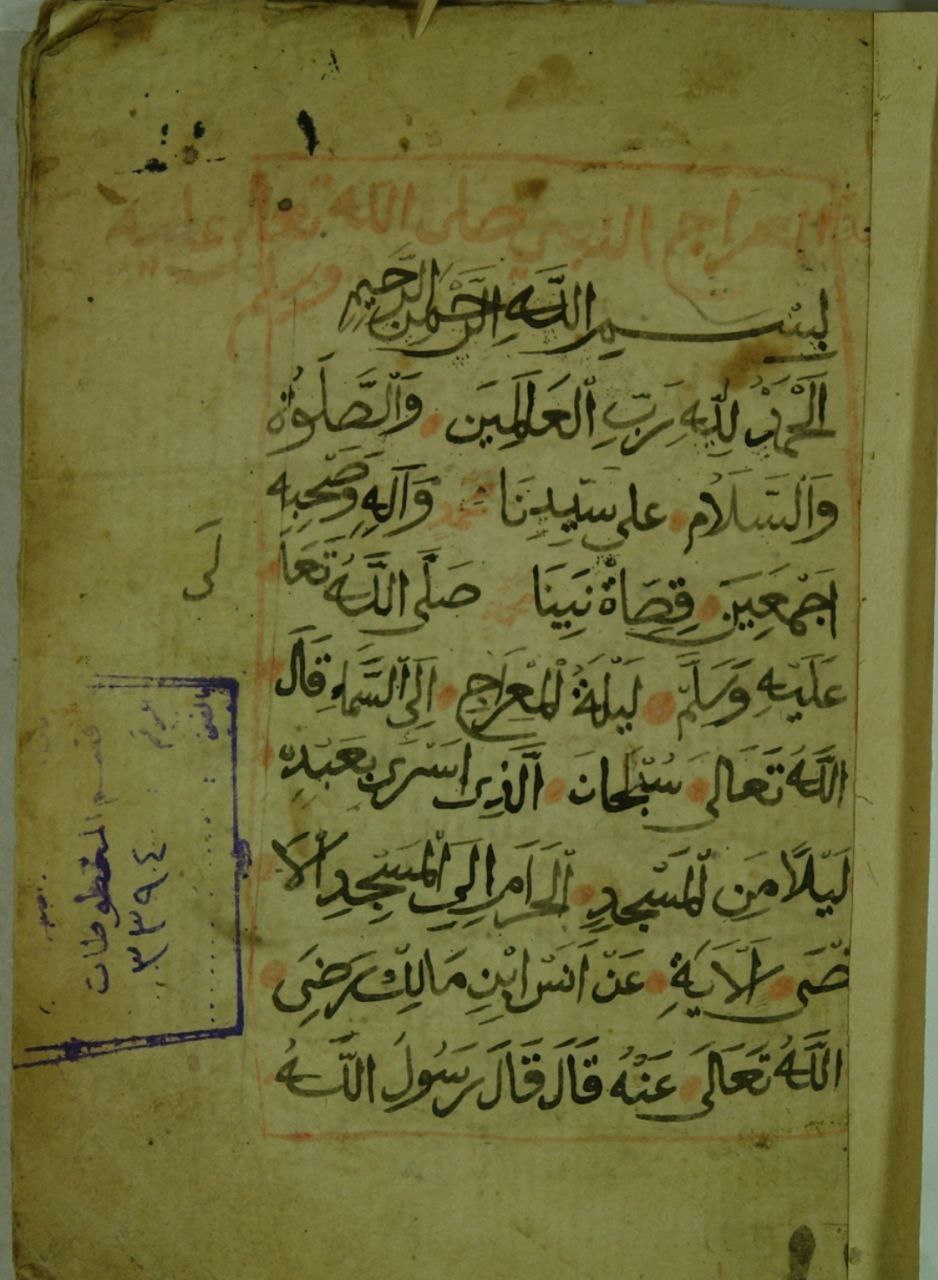 المعراج النبي صلى الله تعالى عليه
وسلم
بِسْمِ اللَّهِ الرَّحْمٰنِ الرَّحِيمِ
اَلْحَمْدُ لِلّٰهِ رَبِّ الْعَالَمِينَ وَالصَّلَوٰةُ
وَالسَّلَامُ على سَيِّدِنَا محمد وَآلِهِ وَصَحْبِهِ
اَجْمَعِينَ قِصَاةْ نَبِينَا محمد صَلَّى اللَّهُ تَعَا
لَى
عَلَيْهِ وَسَلَّمَ لَيْلَةُ الْمِعْرَاجِ اِلَى السَّمَاءِ قَالَ
اللَّهُ تَعَالَى سُبْحَانَ الَّذِى اَسْرَى بِعَبْدِهِ
لَيْلًا مِنَ الْمَسْجِدِ الْحَرَامِ اِلَى الْمَسْجِدِ الْاَ
قْصَى الْآيَةِ عَنْ اَنَسْ ابْنِ مَالِكْ رَضِىَ
اللَّهُ تَعَالَى عَنْهُ قَالَ قَالَ رَسُولُ اللَّهُ
قسم المخطوطات
٣٣٩٤